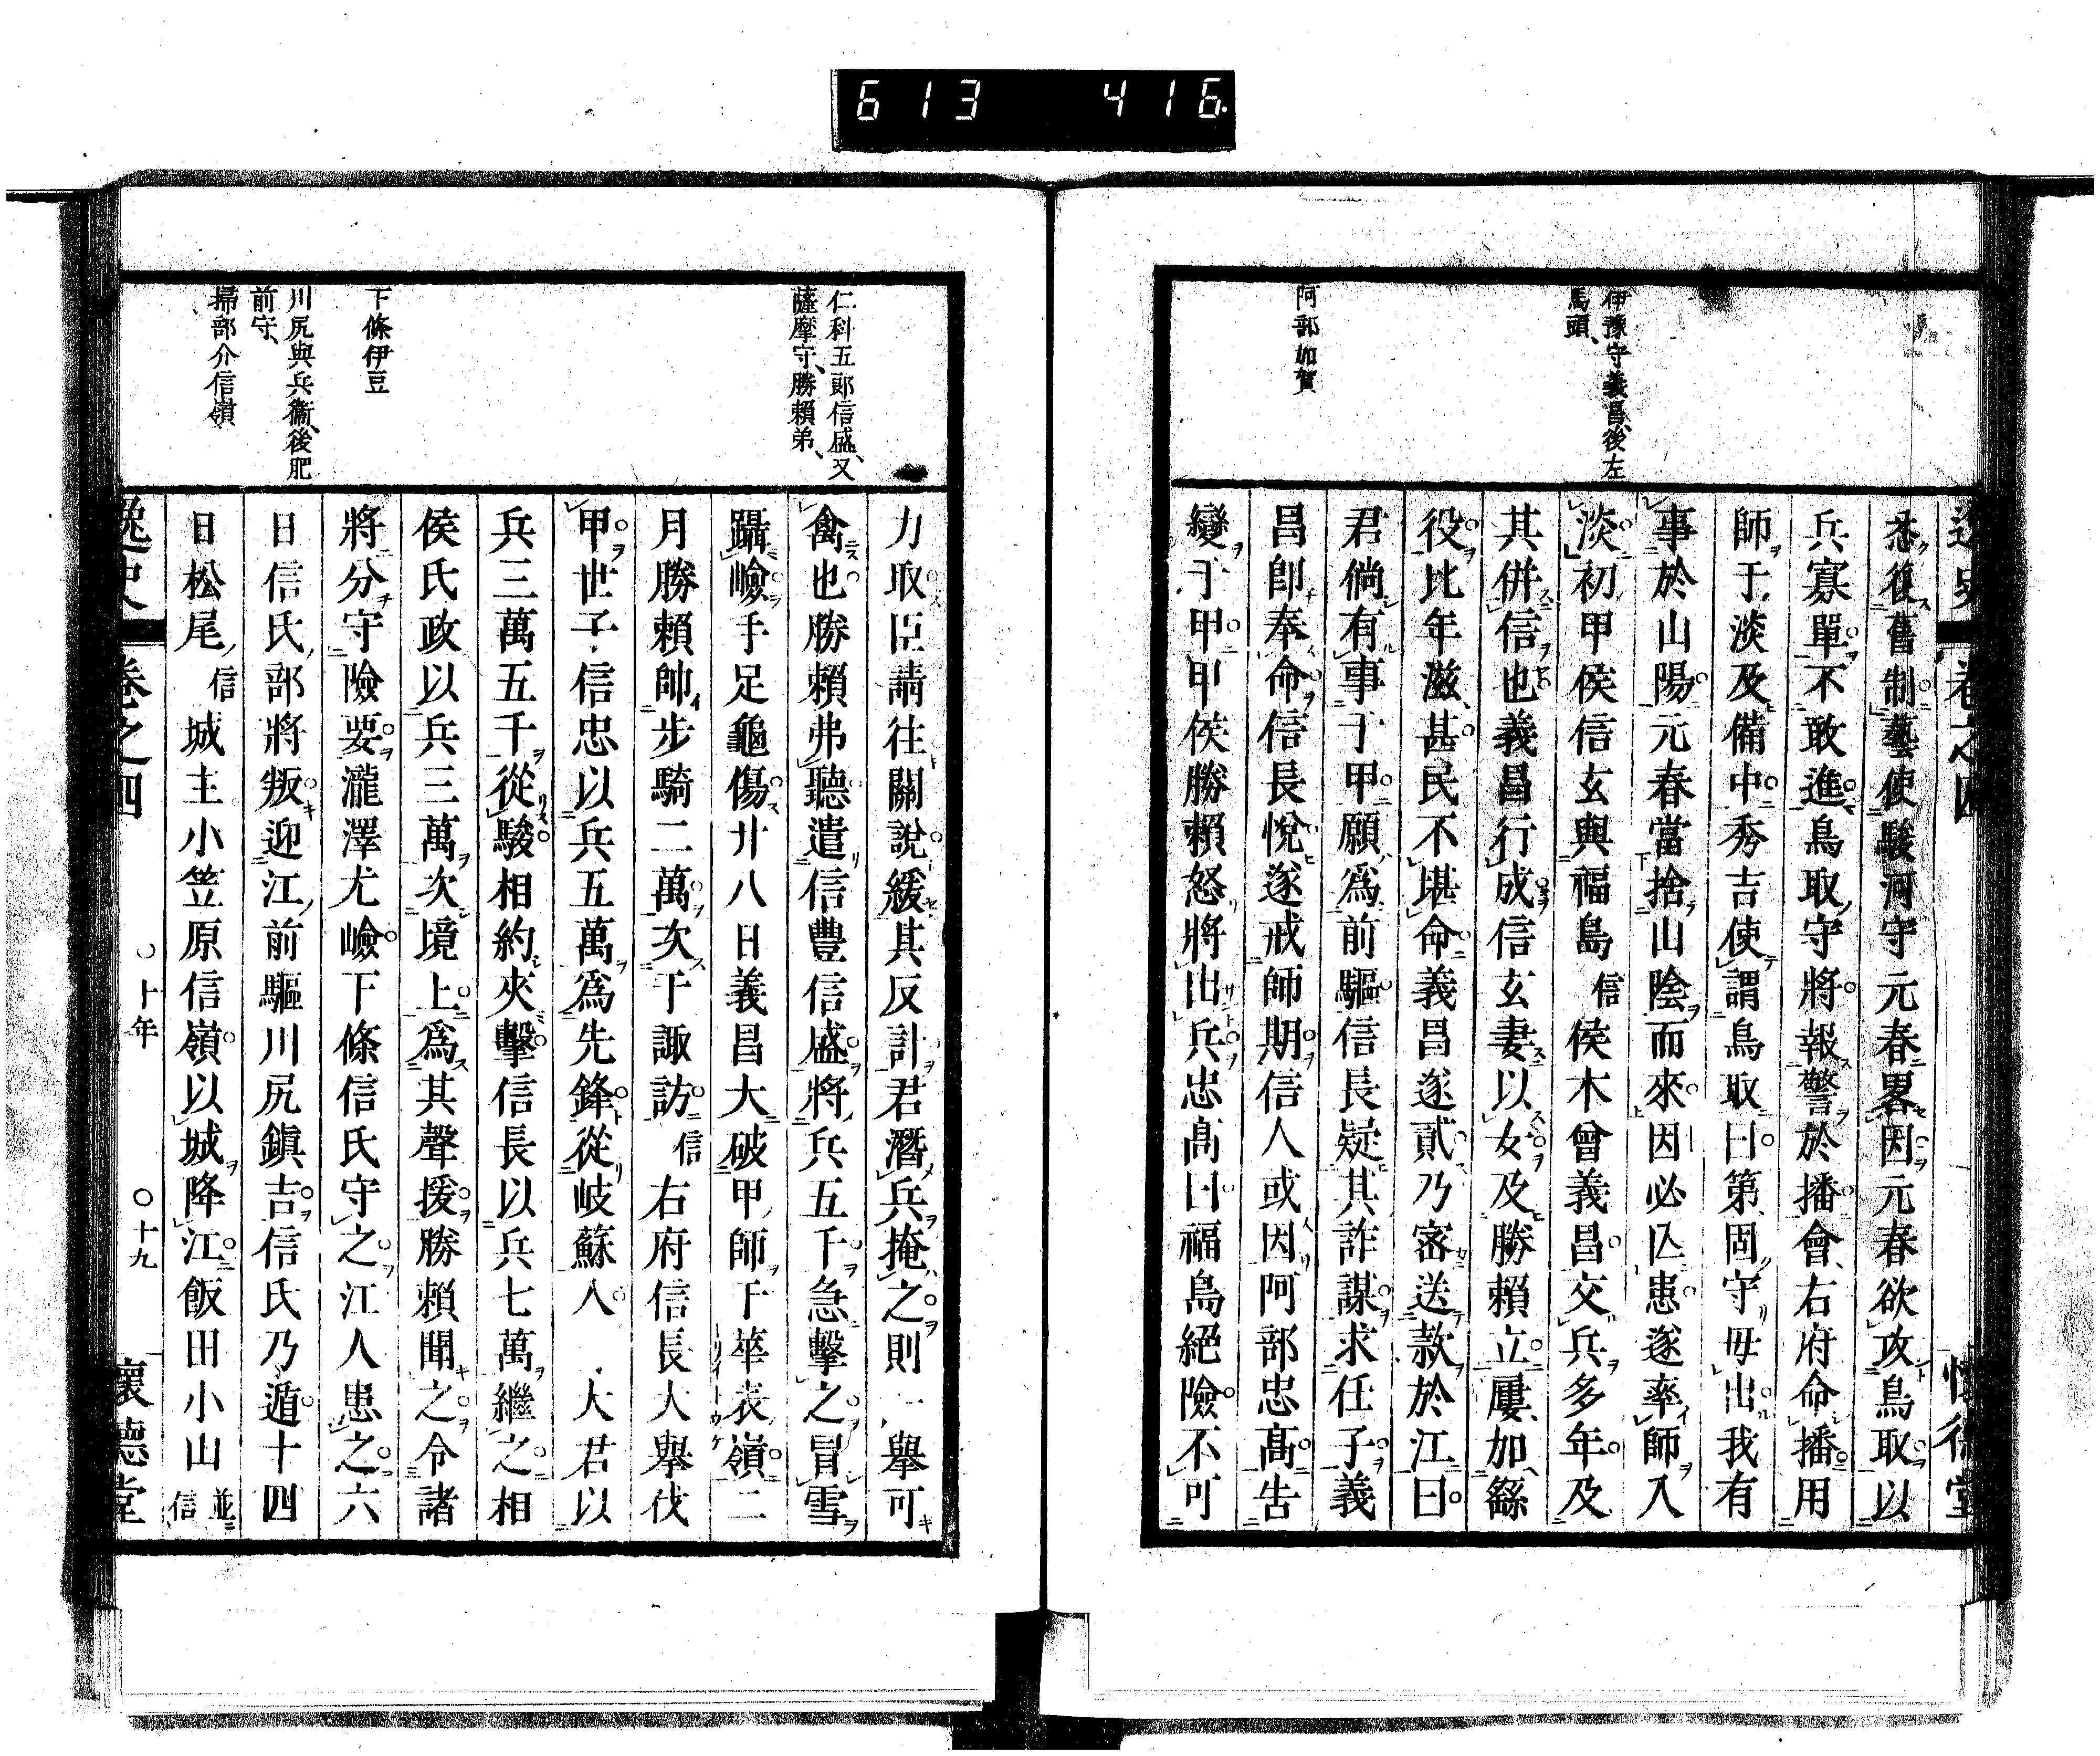 613 416
逸史 卷之四 懷德堂
伊豫守義昌、後左
馬頭、
阿部加賀
悉復舊制藝使駿河守元春畧因元春欲攻鳥取以
兵寡單不敢進鳥取守將報警於播會右府命播用
師于淡及備中秀吉使謂鳥取曰第固守毋出我有
事於山陽元春當捨山陰而來因必亾患遂率師入
淡初甲侯信玄與福島信侯木曾義昌交兵多年及
其併信也義昌行成信玄妻以女及勝賴立屢加繇
役比年滋甚民不堪命義昌遂貳乃密送款於江曰
君倘有事于甲願爲前驅信長疑其詐謀求任子義
昌卽奉命信長悅遂戒師期信人或因阿部忠高告
變于甲甲侯勝賴怒將出兵忠高曰福島絕險不可
仁科五郎信盛、又
薩摩守、勝賴弟、
下條伊豆
川尻與兵衞、後肥
前守、
掃部介信嶺
力取臣請往關說緩其反計君潛兵掩之則一擧可
禽也勝賴弗聽遣信豐信盛將兵五千急擊之冒雪
躡嶮手足龜傷廿八日義昌大破甲師于華表嶺二
月勝賴帥步騎二萬次于諏訪信右府信長大擧伐
甲世子信忠以兵五萬爲先鋒從岐蘇入 大君以
兵三萬五千從駿相約夾擊信長以兵七萬繼之相
侯氏政以兵三萬次境上爲其聲援勝賴聞之令諸
將分守險要瀧澤尤嶮下條信氏守之江人患之六
日信氏部將叛迎江前驅川尻鎭吉信氏乃遁十四
日松尾信城主小笠原信嶺以城降江飯田小山並信
逸史 卷之四 〇十年 〇十九 懷德堂